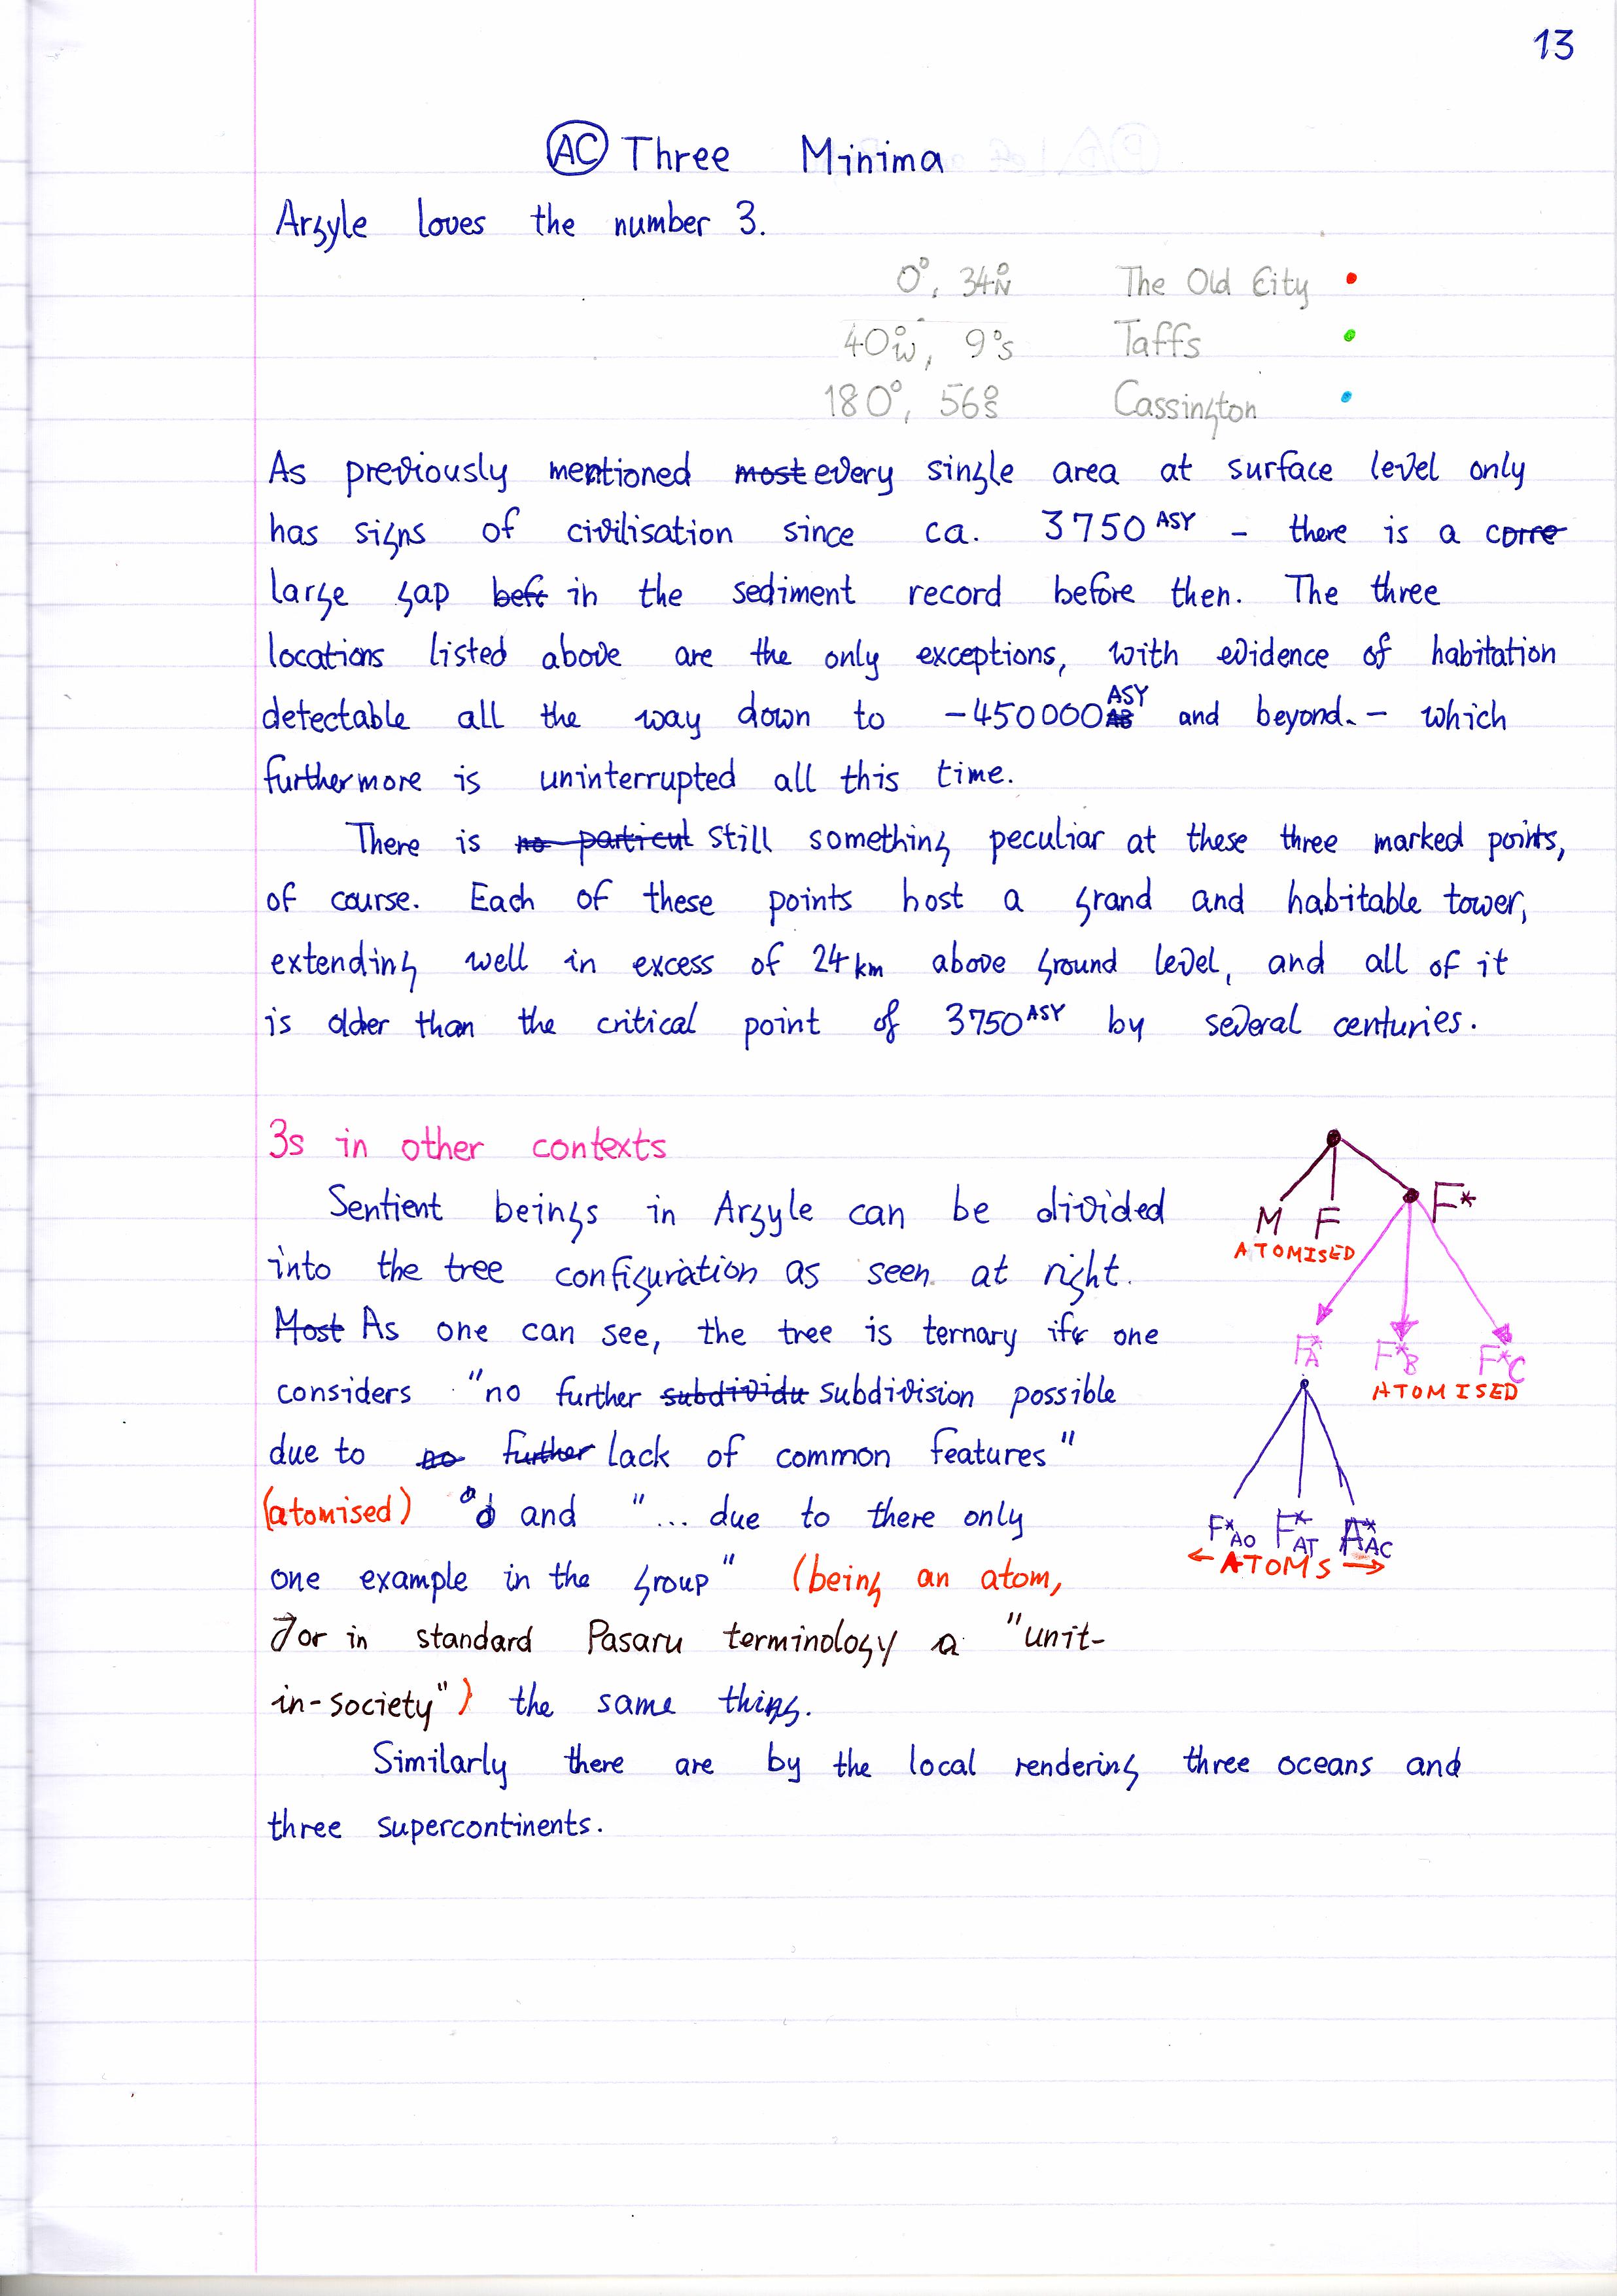 13
AC Three Minima
Argyle loves the number 3.
0°, 34°N The Old City
40°W, 9°S Taffs
180°, 56°S Cassington
As previously mentioned most every single area at surface level only
has signs of civilisation since ca. 3750 ASY – there is a corre
large gap befr in the sediment record before then. The three
locations listed above are the only exceptions, with evidence of habitation
detectable all the way down to -450000 ASY and beyond. – which
furthermore is uninterrupted all this time.
There is no particul still something peculiar at these three marked points,
of course. Each of these points host a grand and habitable tower,
extending well in excess of 24 km above ground level, and all of it
is older than the critical point of 3750 ASY by several centuries.
3s in other contexts
Sentient beings in Argyle can be divided
into the tree configuration as seen at right.
Most As one can see, the tree is ternary if one
considers "no further subdividu subdivision possible
due to no further lack of common features"
(atomised) and "... due to there only
one example in the group" (being an atom,
or in standard Pasaru terminology a "unit-
in-society") the same thing.
Similarly there are by the local rendering three oceans and
three supercontinents.
M F F*
ATOMISED
F*A F*B F*C
ATOMISED
F*AO F*AT A*AC
← ATOMS →